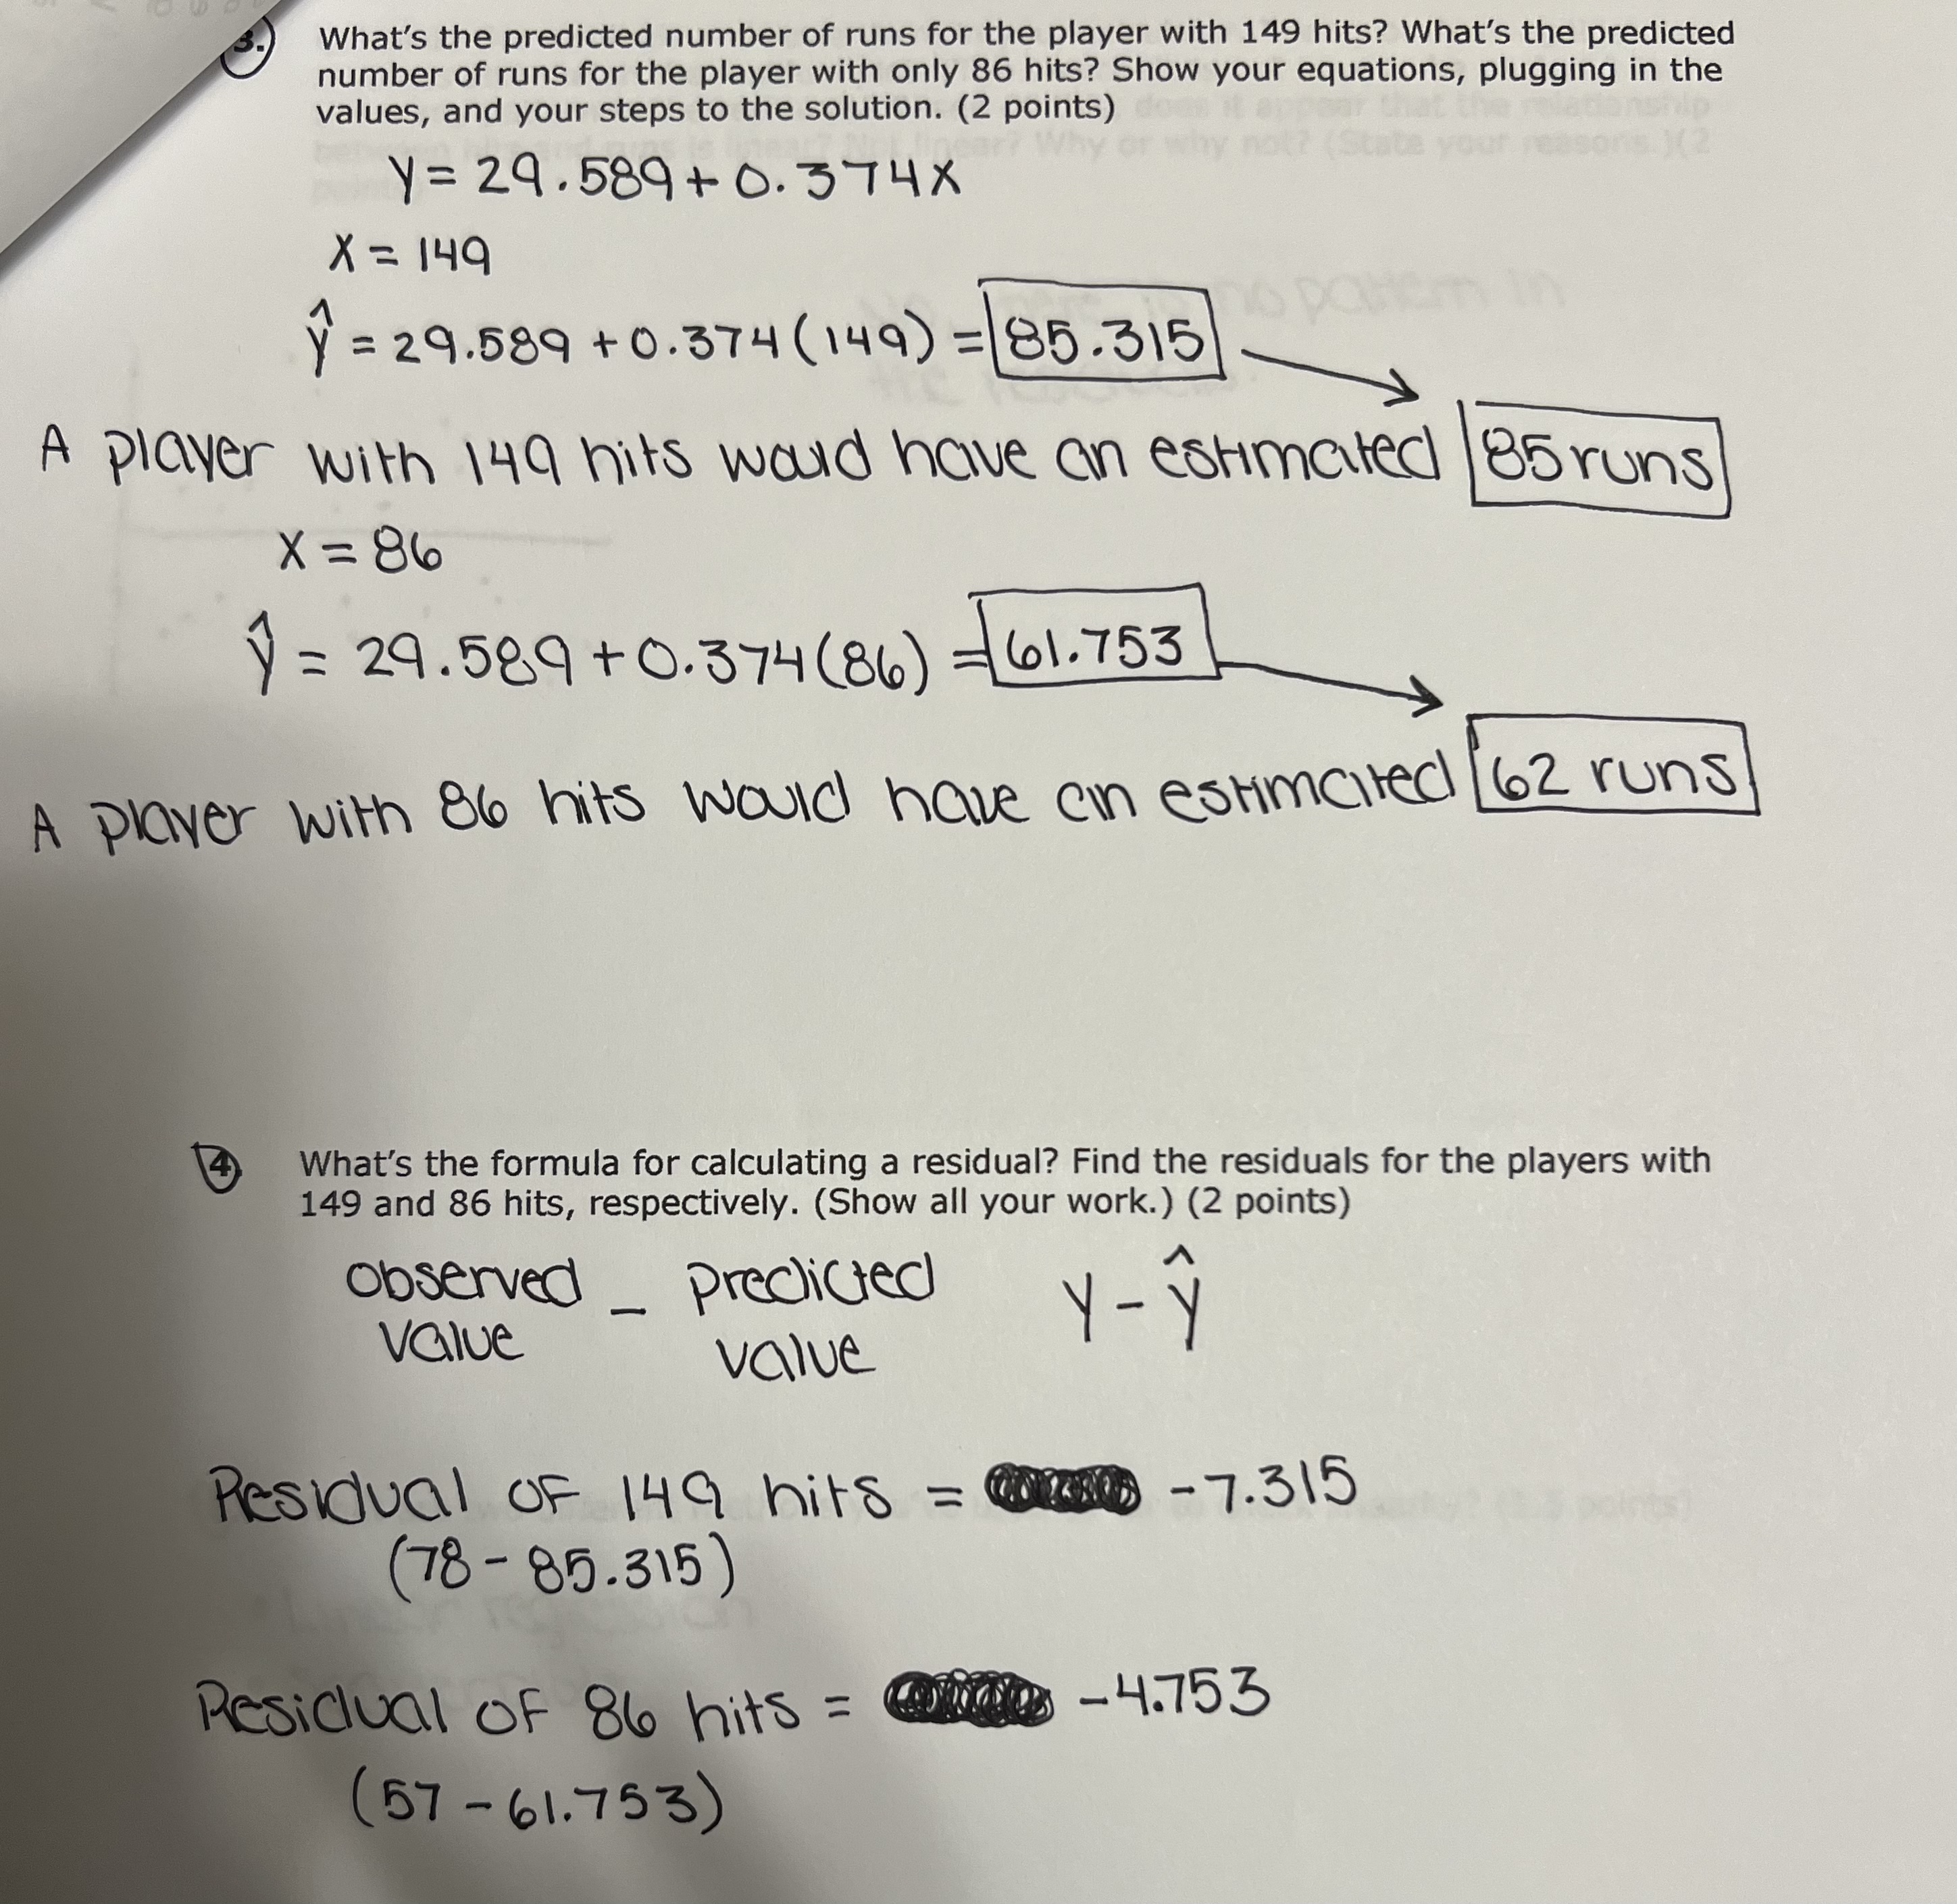 3. What's the predicted number of runs for the player with 149 hits? What's the predicted
number of runs for the player with only 86 hits? Show your equations, plugging in the
values, and your steps to the solution. (2 points)
y = 29.589 + 0.374x
x = 149
ŷ = 29.589 + 0.374(149) = 85.315
A player with 149 hits would have an estimated 85 runs
x = 86
ŷ = 29.589 + 0.374(86) = 61.753
A player with 86 hits would have an estimated 62 runs
4 What's the formula for calculating a residual? Find the residuals for the players with
149 and 86 hits, respectively. (Show all your work.) (2 points)
observed value – predicted value y - ŷ
Residual of 149 hits = -7.315
(78 - 85.315)
Residual of 86 hits = -4.753
(57 - 61.753)